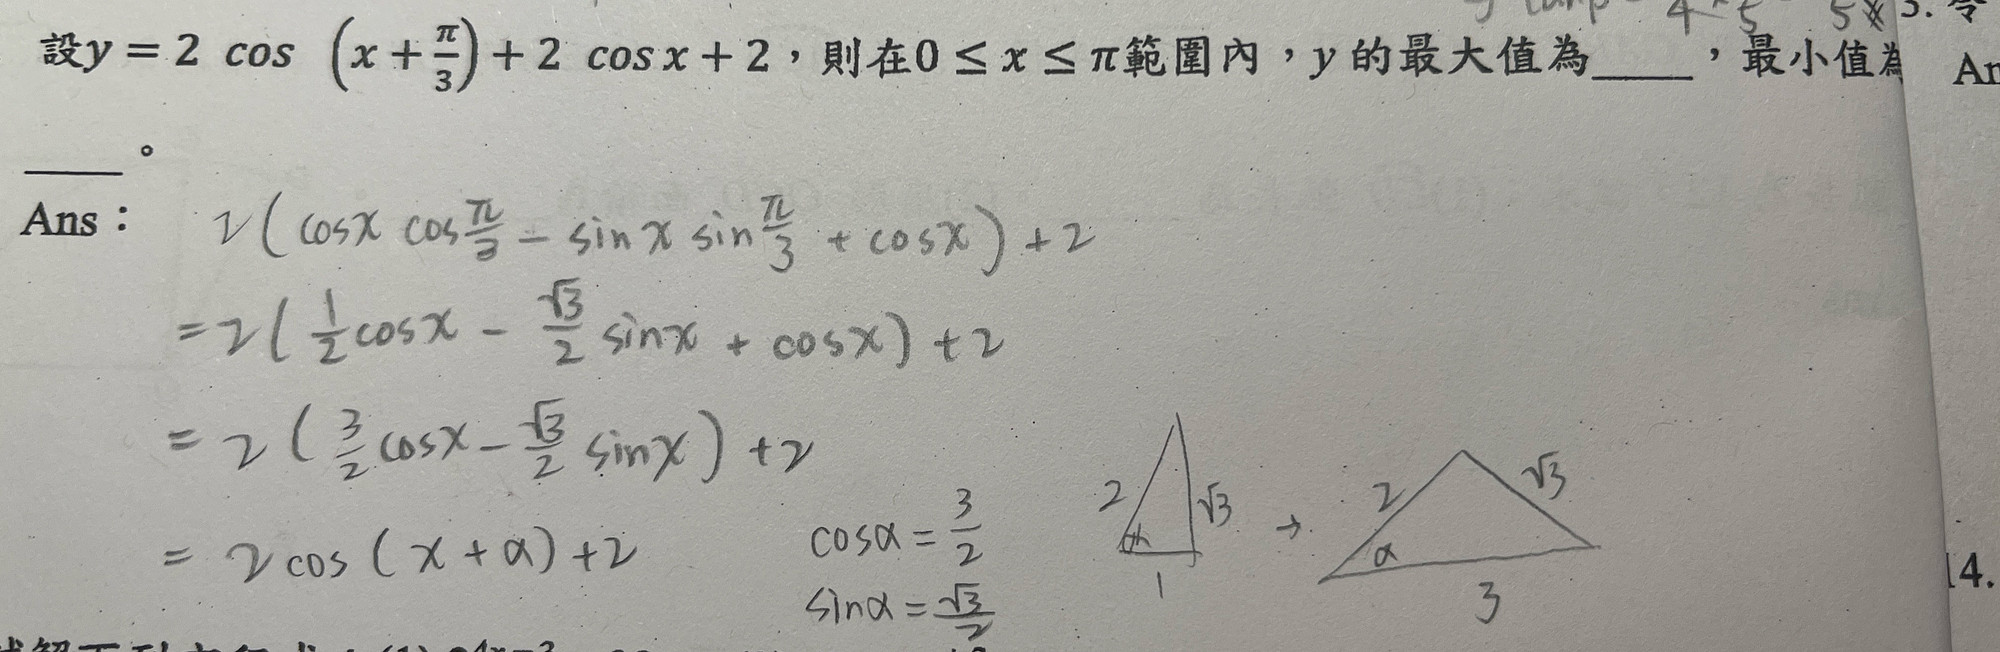 設y = 2 cos (x + π/3) + 2 cos x + 2，則在0 ≤ x ≤ π範圍內，y 的最大值為_____，最小值為
_____。
Ans：
2(cosx cos π/3 - sinx sin π/3 + cosx) + 2
= 2(1/2 cosx - √3/2 sinx + cosx) + 2
= 2(3/2 cosx - √3/2 sinx) + 2
= 2cos(x + α) + 2
cosα = 3/2
sinα = √3/2
2 √3 1 → 2 √3 α 3
3. 令
An
14.